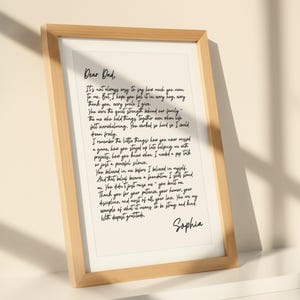 Dear Dad,
It's not always easy to say how much you mean
to me. But I hope you feel it in every hug, every
thank you, every smile I give.
You were the quiet strength behind our family -
the one who held things together even when life
felt overwhelming. You worked so hard so I could
dream freely.
I remember the little things how you never missed
a game, how you stayed up late helping me with
projects, how you knew when I needed a pep talk
or just a peaceful silence.
You believed in me before I believed in myself.
And that belief became a foundation I still stand
on. You didn't just raise me - you built me.
Thank you for your patience, your humor, your
discipline, and most of all, your love. You are my
example of what it means to be strong and kind.
With deepest gratitude,
Sophia